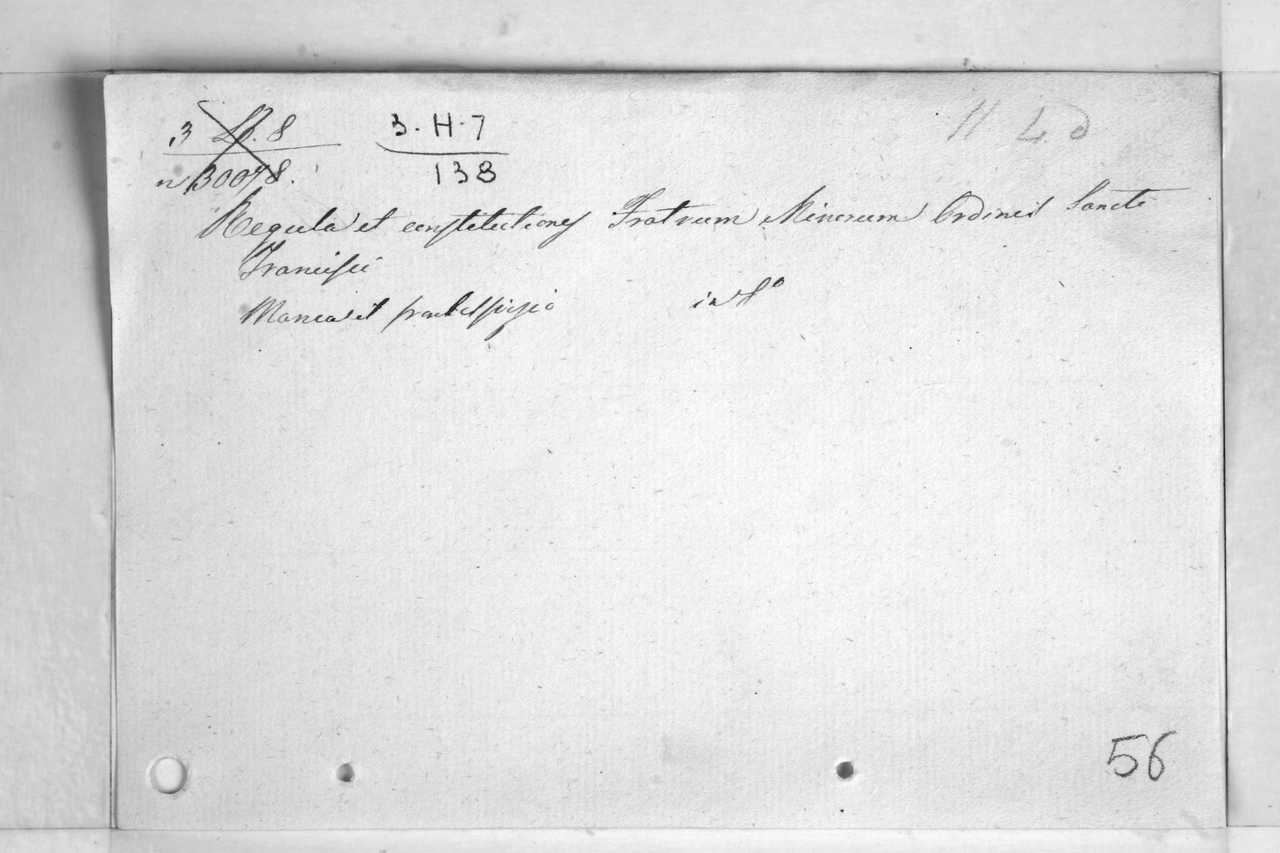 3 B. 8 3. H. 7 H 4 d
n 30078. 138
Regula et constitutiones Fratrum Minorum Ordinis Sancti
Francisci
Manca il frontespizio in 8º
56